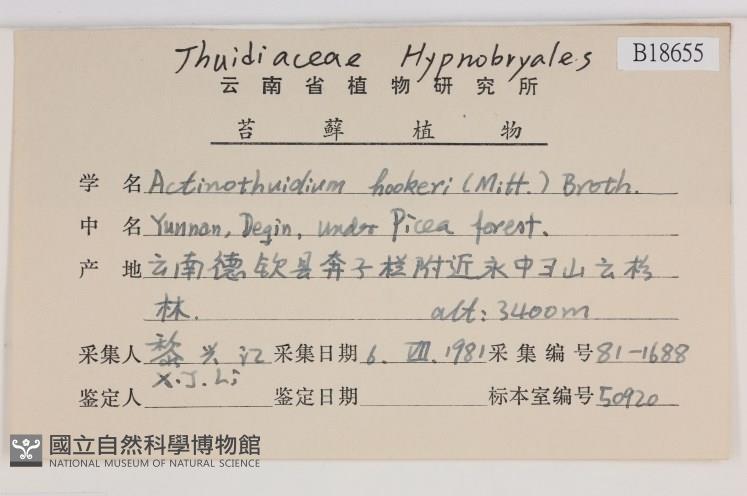 Thuidiaceae Hypnobryales
B18655
云南省植物研究所
苔藓植物
学名 Actinothuidium hookeri (Mitt.) Broth.
中名 Yunnan, Deqin, under Picea forest.
产地 云南德钦县奔子栏附近永中ヨ山云杉
林. alt: 3400m
采集人 黎兴江 采集日期 6. VIII. 1981 采集编号 81-1688
X.J.Li
鉴定人 鉴定日期 标本室编号 50920
國立自然科學博物館
NATIONAL MUSEUM OF NATURAL SCIENCE